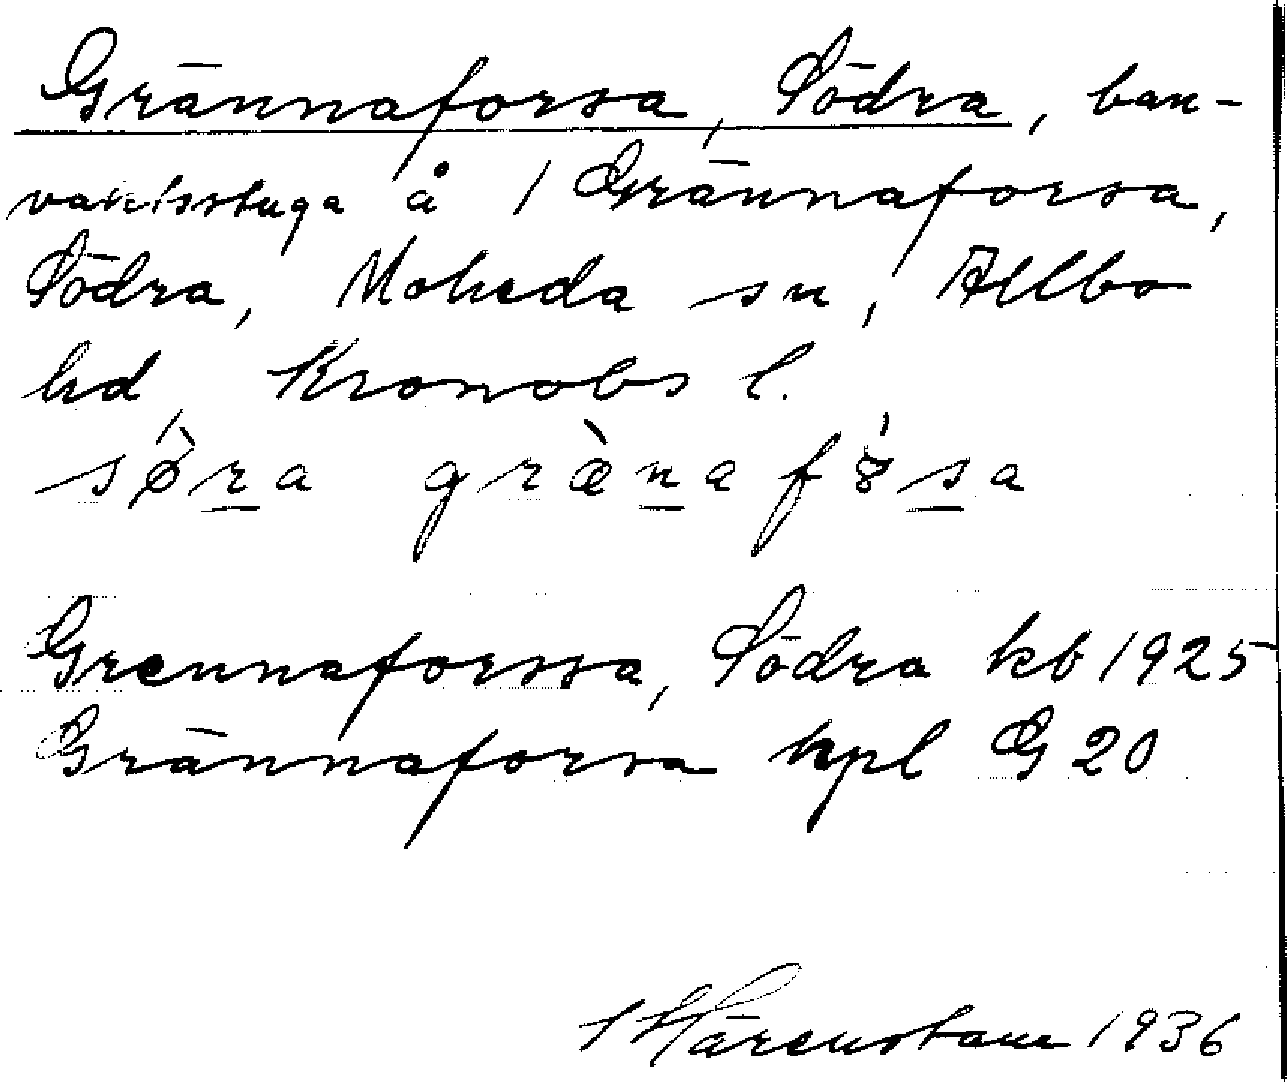 Grännaforsa, Södra, ban-
vaktsstuga å 1 Grännaforsa,
Södra, Moheda sn, Allbo
hd, Kronobs l.
sø̀ra græ̀naf ɵ́sa
Grennaforssa, Södra kb 1925
Grännaforsa hpl G 20
Härenstam 1936